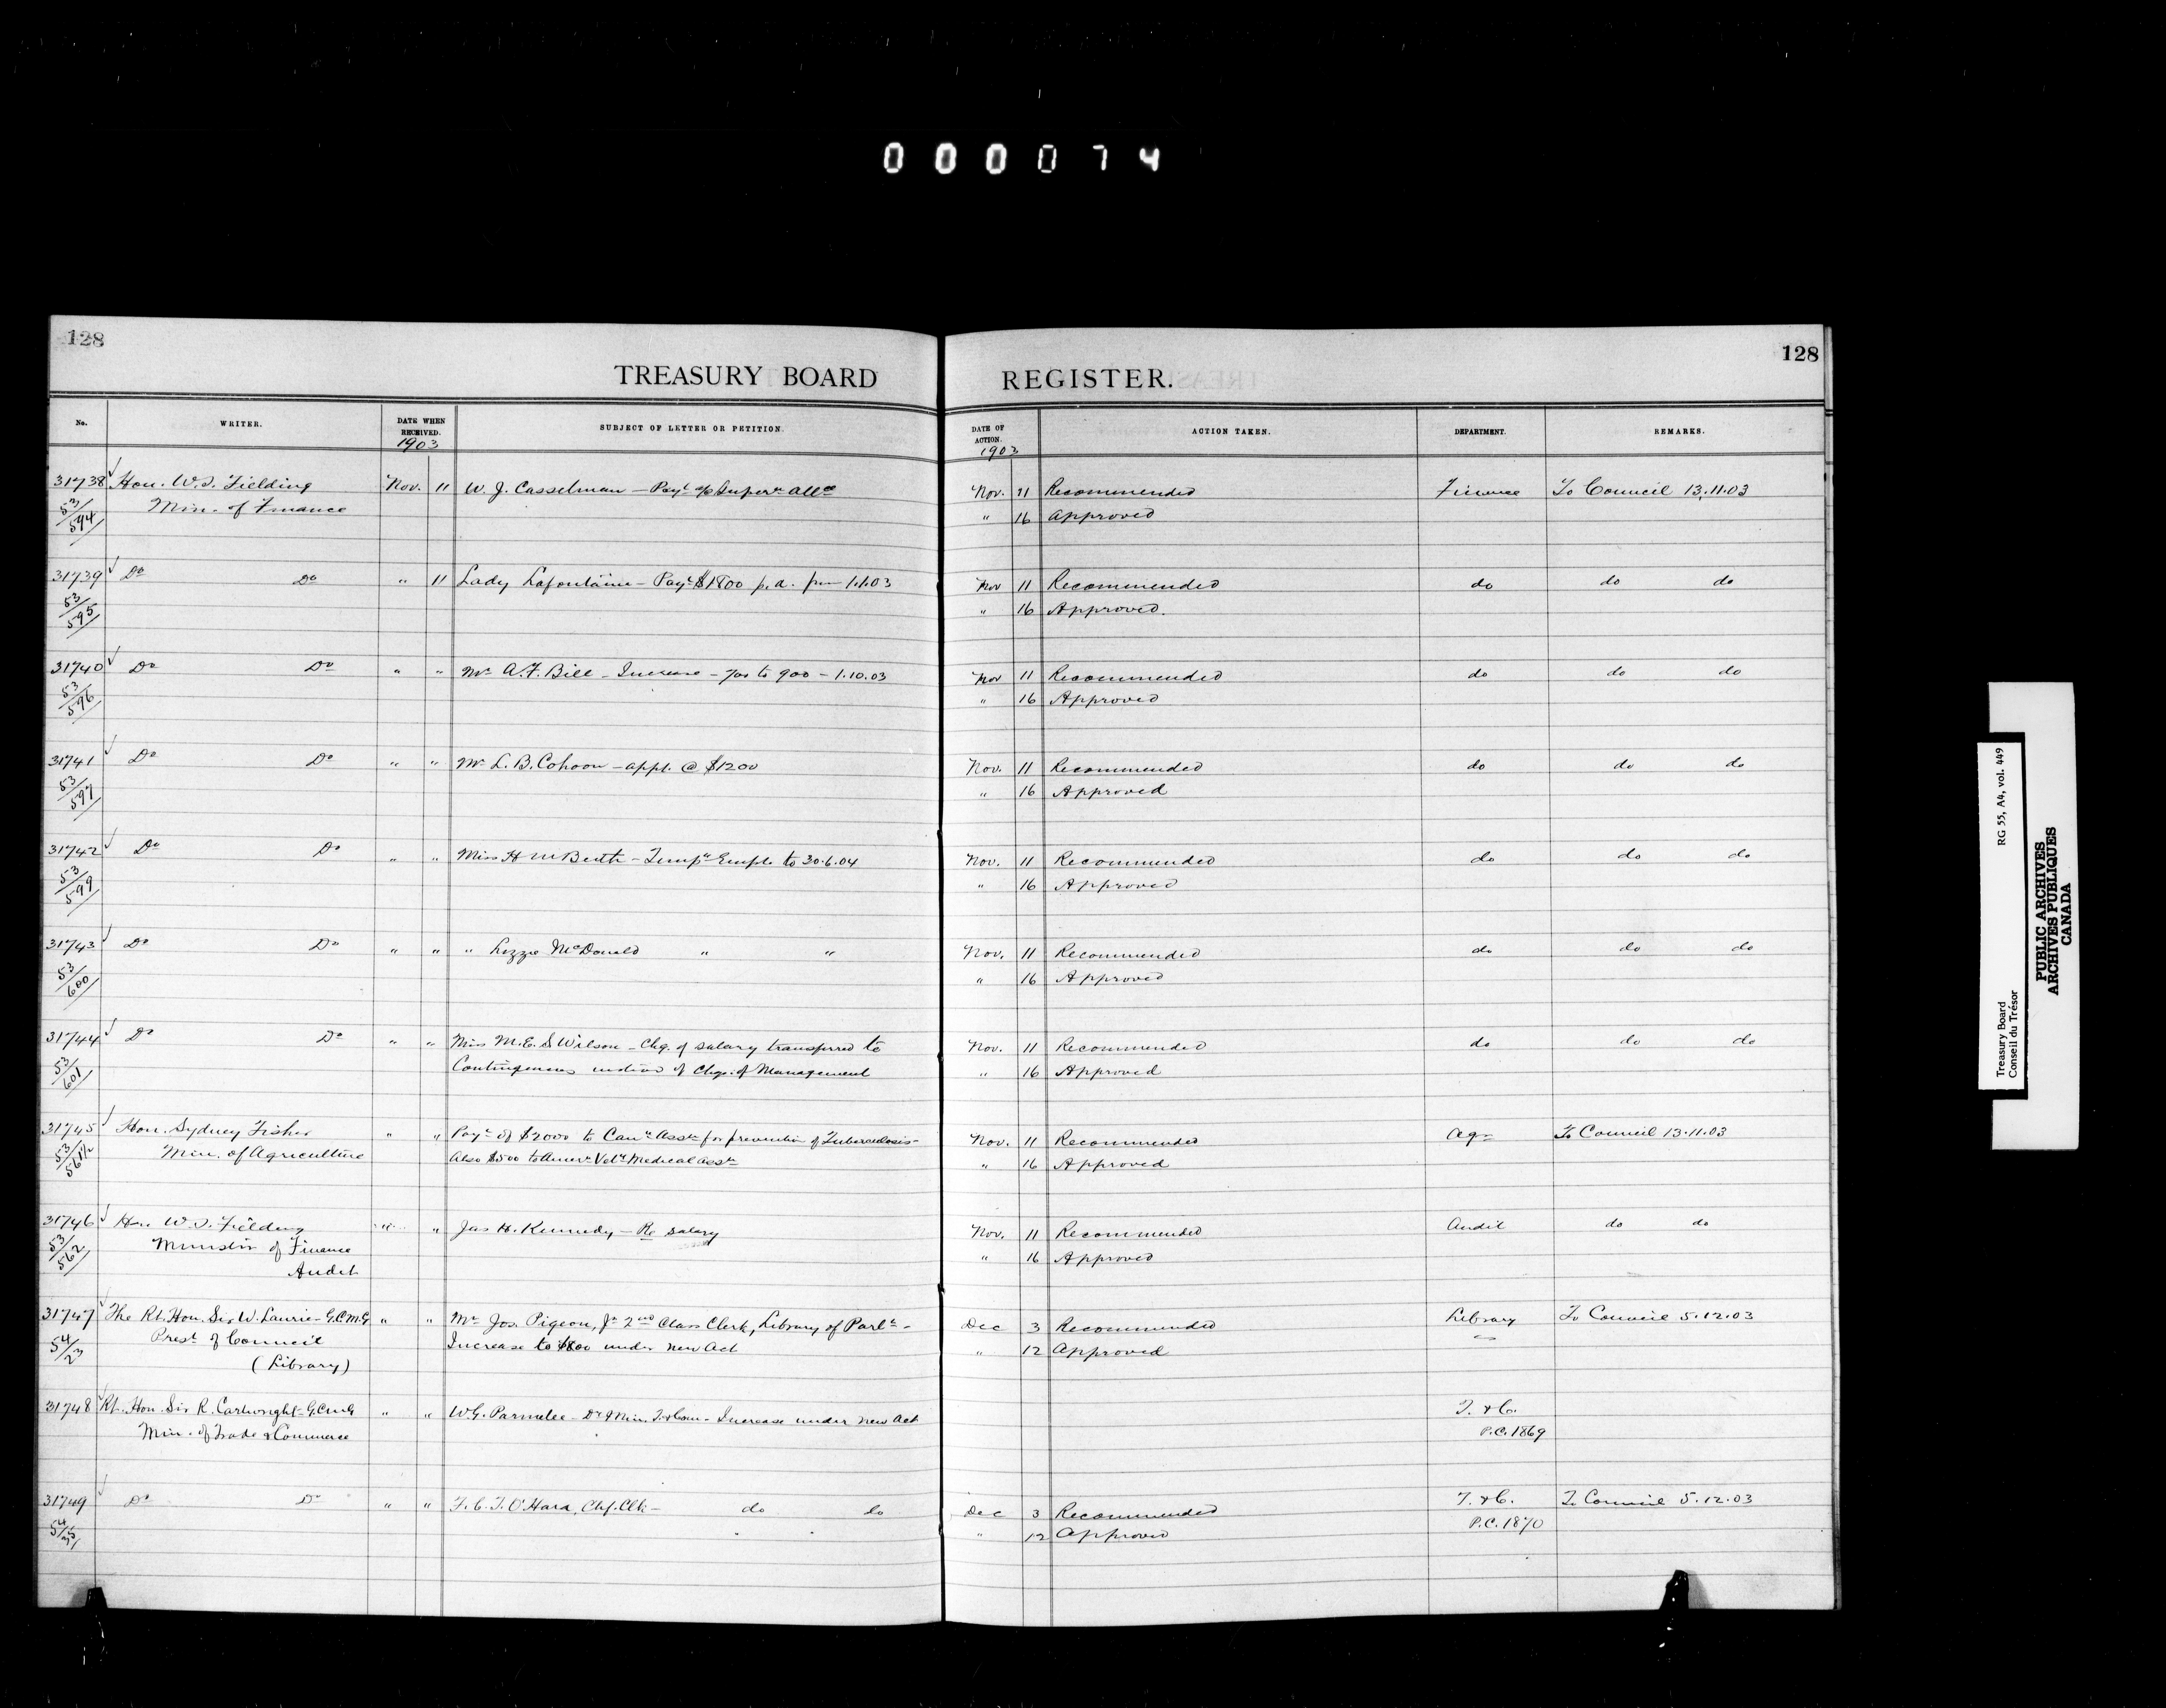 000074
128
128
TREASURY BOARD REGISTER.
No. WRITER. DATE WHEN RECEIVED. SUBJECT OF LETTER OR PETITION. DATE OF ACTION. ACTION TAKEN. DEPARTMENT. REMARKS.
1903 1903
31738 Hon. W.S. Fielding Nov. 11 W. J. Casselman – Payt of Supern Allce Nov. 11 Recommended Finance To Council 13.11.03
53/594 Min. of Finance " 16 Approved
31739 Do Do " 11 Lady Lafontaine – Payt $1800 p.a. from 1.1.03 Nov 11 Recommended do do do
53/595 " 16 Approved.
31740 Do Do " " Mr A.F. Bill – Increase – 700 to 900 – 1.10.03 Nov 11 Recommended do do do
53/596 " 16 Approved
31741 Do Do " " Mr L.B. Cohoon – appt. @ $1200 Nov. 11 Recommended do do do
53/597 " 16 Approved
31742 Do Do " " Miss H M – Tempy Empt. to 30.6.04 Nov. 11 Recommended do do do
53/599 " 16 Approved
31743 Do Do " " " Lizzie McDonald " " Nov. 11 Recommended do do do
53/600 " 16 Approved
31744 Do Do " " Miss M.E.S. Wilson – Chg. of salary transferred to Nov. 11 Recommended do do do
53/601 Contingencies instead of Chgs. of Management " 16 Approved
31745 Hon. Sydney Fisher " " Payt of $2000 to Cann Assn for prevention of Tuberculosis – Nov. 11 Recommended Agr To Council 13.11.03
53/561½ Min. of Agriculture Also $500 to Amern Vety Medical Assn " 16 Approved
31746 Hon. W.S. Fielding " " Jas H. Kennedy – Re salary Nov. 11 Recommended Audit do do
53/562 Minister of Finance " 16 Approved
Audit
31747 The Rt. Hon. Sir W. Laurier G.C.M.G " " Mr Jos. Pigeon, Jr 2nd Class Clerk, Library of Parlt – Dec 3 Recommended Library To Council 5.12.03
54/23 Prest of Council Increase to $800 under new Act " 12 Approved
(Library)
31748 Rt. Hon. Sir R. Cartwright G.C.M.G " " W.G. Parmelee – Dy Min. T. & Com. – Increase under new Act T. & C.
Min. of Trade & Commerce P.C. 1869
31749 Do Do " " F.C.T. O'Hara, Chf. Clk – do do Dec 3 Recommended T. & C. To Council 5.12.03
" 12 Approved P.C. 1870
RG 55, A4, vol. 449
Treasury Board
Conseil du Trésor
PUBLIC ARCHIVES
ARCHIVES PUBLIQUES
CANADA